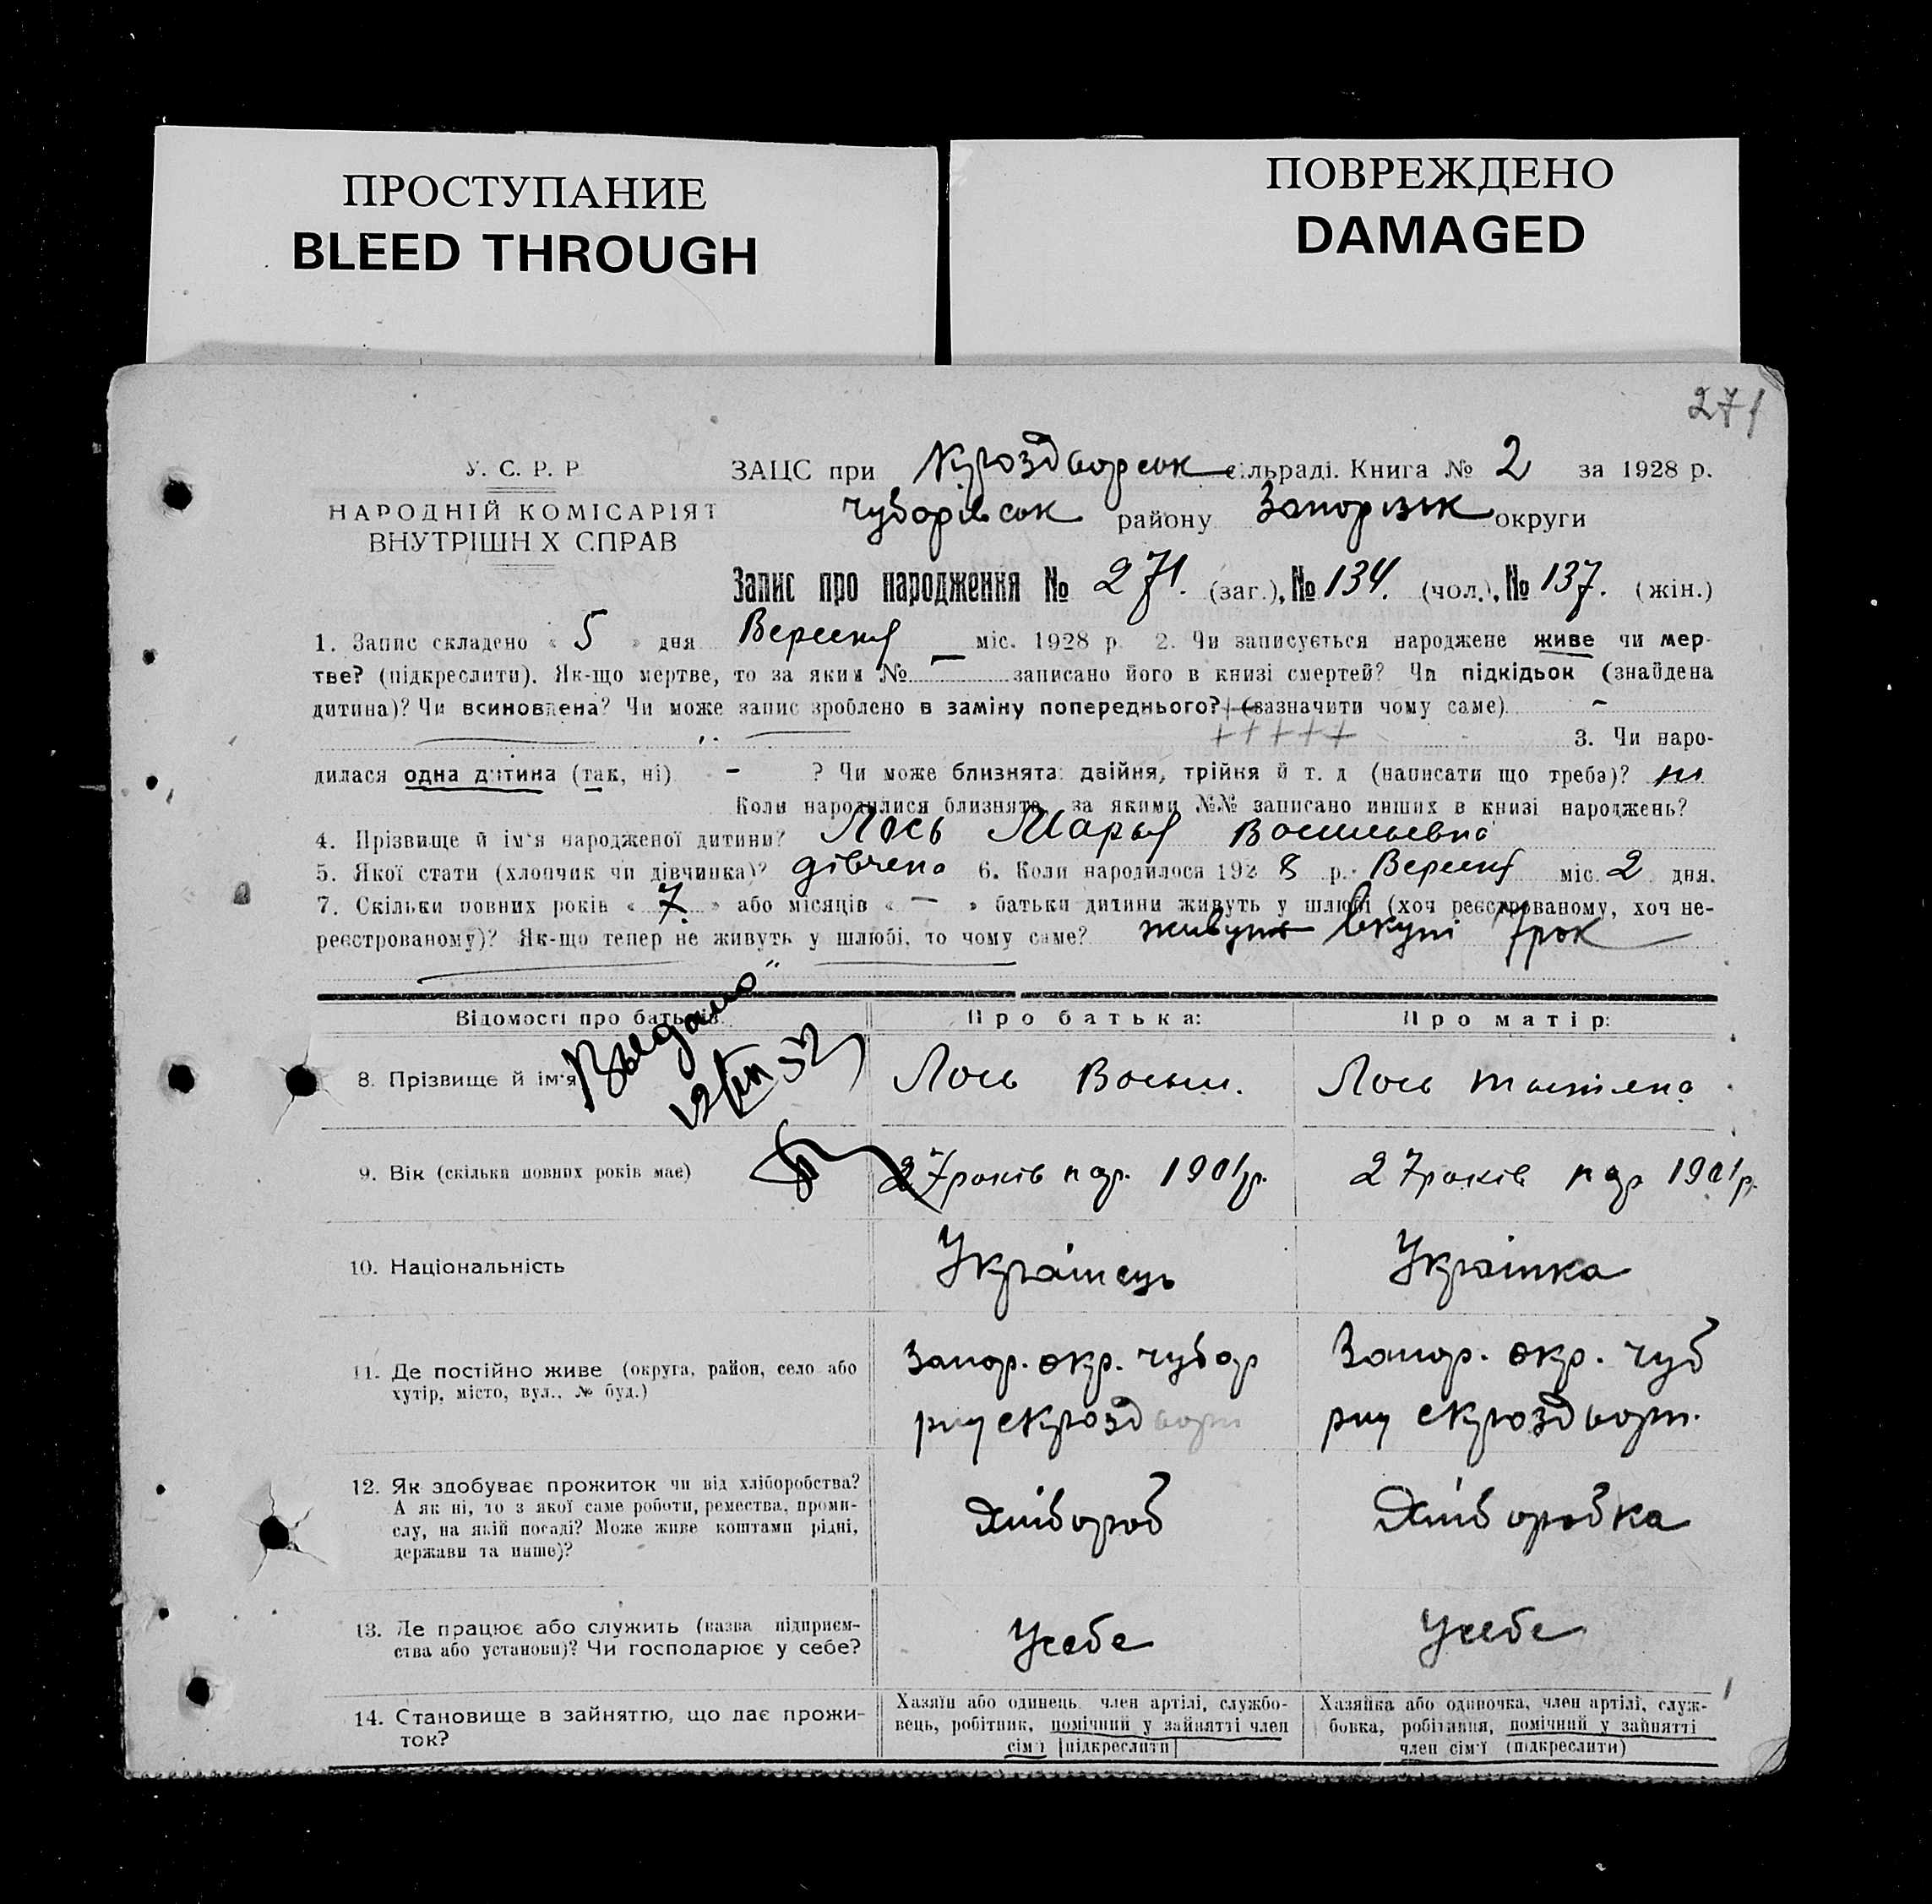 ПРОСТУПАНИЕ
BLEED THROUGH
ПОВРЕЖДЕНО
DAMAGED
271
У. С. Р. Р
НАРОДНІЙ КОМІСАРІЯТ
ВНУТРІШН Х СПРАВ
ЗАЦС при сільраді. Книга № 2 за 1928 р.
Чубарівськ району Запорізьк округи
Запис про народження № 271. (заг.), № 134. (чол.), № 137. (жін.)
1. Запис складено « 5 » дня Вересня міс. 1928 р. 2. Чи записується народжене живе чи мер-
тве? (підкреслити). Як-що мертве, то за яким № — записано його в книзі смертей? Чи підкідьок (знайдена
дитина)? Чи всиновлена? Чи може запис зроблено в заміну попереднього? (зазначити чому саме) –
+ + + + +
3. Чи наро-
дилася одна дитина (так, ні) – ? Чи може близнята: двійня, трійня й т. д (написати що треба)? ні
Коли народилися близнята, за якими №№ записано инших в книзі народжень?
4. Прізвище й ім'я народженої дитини? Лось Марья Васильевна
5. Якої стати (хлопчик чи дівчинка)? дівчено 6. Коли народилося 1928 р. Вересня міс. 2 дня.
7. Скільки повних років « 7 » або місяців « — » батьки дитини живуть у шлюбі (хоч реєстрованому, хоч не-
реєстрованому)? Як-що тепер не живуть у шлюбі, то чому саме? живуть вкупі 7 рок
Відомості про батьків. Про батька: Про матір:
8. Прізвище й ім'я Лось Васил. Лось Татіяна
9. Вік (скільки повних років має) 27 років нар. 1901 р. 27 років нар 1901 р.
10. Національність Українець Українка
11. Де постійно живе (округа, район, село або
хутір, місто, вул., № буд.)
Запор. окр. Чубар
Запор. окр. Чуб
12. Як здобуває прожиток чи від хліборобства?
А як ні, то з якої саме роботи, ремества, проми-
слу, на якій посаді? Може живе коштами рідні,
держави та инше)?
Хлібороб Хліборобка
13. Де працює або служить (назва підприєм-
ства або установи)? Чи господарює у себе?
У себе У себе
14. Становище в зайняттю, що дає прожи-
ток?
Хазяїн або одинець, член артілі, службо-
вець, робітник, помічний у зайнятті член
сім'ї [підкреслити]
Хазяйка або одиночка, член артілі, служ-
бовка, робітниця, помічний у зайнятті
член сім'ї (підкреслити)